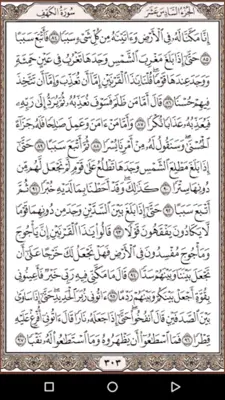 الجزء السادس عشر سورة الكهف
إِنَّا مَكَّنَّا لَهُۥ فِى ٱلْأَرْضِ وَءَاتَيْنَٰهُ مِن كُلِّ شَىْءٍ سَبَبًا ٨٤ فَأَتْبَعَ سَبَبًا
٨٥ حَتَّىٰٓ إِذَا بَلَغَ مَغْرِبَ ٱلشَّمْسِ وَجَدَهَا تَغْرُبُ فِى عَيْنٍ حَمِئَةٍ
وَوَجَدَ عِندَهَا قَوْمًا قُلْنَا يَٰذَا ٱلْقَرْنَيْنِ إِمَّآ أَن تُعَذِّبَ وَإِمَّآ أَن تَتَّخِذَ
فِيهِمْ حُسْنًا ٨٦ قَالَ أَمَّا مَن ظَلَمَ فَسَوْفَ نُعَذِّبُهُۥ ثُمَّ يُرَدُّ إِلَىٰ رَبِّهِۦ
فَيُعَذِّبُهُۥ عَذَابًا نُّكْرًا ٨٧ وَأَمَّا مَنْ ءَامَنَ وَعَمِلَ صَٰلِحًا فَلَهُۥ جَزَآءً
ٱلْحُسْنَىٰ وَسَنَقُولُ لَهُۥ مِنْ أَمْرِنَا يُسْرًا ٨٨ ثُمَّ أَتْبَعَ سَبَبًا ٨٩
حَتَّىٰٓ إِذَا بَلَغَ مَطْلِعَ ٱلشَّمْسِ وَجَدَهَا تَطْلُعُ عَلَىٰ قَوْمٍ لَّمْ نَجْعَل لَّهُم مِّن
دُونِهَا سِتْرًا ٩٠ كَذَٰلِكَ وَقَدْ أَحَطْنَا بِمَا لَدَيْهِ خُبْرًا ٩١ ثُمَّ
أَتْبَعَ سَبَبًا ٩٢ حَتَّىٰٓ إِذَا بَلَغَ بَيْنَ ٱلسَّدَّيْنِ وَجَدَ مِن دُونِهِمَا قَوْمًا
لَّا يَكَادُونَ يَفْقَهُونَ قَوْلًا ٩٣ قَالُوا۟ يَٰذَا ٱلْقَرْنَيْنِ إِنَّ يَأْجُوجَ
وَمَأْجُوجَ مُفْسِدُونَ فِى ٱلْأَرْضِ فَهَلْ نَجْعَلُ لَكَ خَرْجًا عَلَىٰٓ أَن
تَجْعَلَ بَيْنَنَا وَبَيْنَهُمْ سَدًّا ٩٤ قَالَ مَا مَكَّنِّى فِيهِ رَبِّى خَيْرٌ فَأَعِينُونِى
بِقُوَّةٍ أَجْعَلْ بَيْنَكُمْ وَبَيْنَهُمْ رَدْمًا ٩٥ ءَاتُونِى زُبَرَ ٱلْحَدِيدِ حَتَّىٰٓ إِذَا سَاوَىٰ
بَيْنَ ٱلصَّدَفَيْنِ قَالَ ٱنفُخُوا۟ حَتَّىٰٓ إِذَا جَعَلَهُۥ نَارًا قَالَ ءَاتُونِىٓ أُفْرِغْ عَلَيْهِ
قِطْرًا ٩٦ فَمَا ٱسْطَٰعُوٓا۟ أَن يَظْهَرُوهُ وَمَا ٱسْتَطَٰعُوا۟ لَهُۥ نَقْبًا ٩٧
٣٠٣